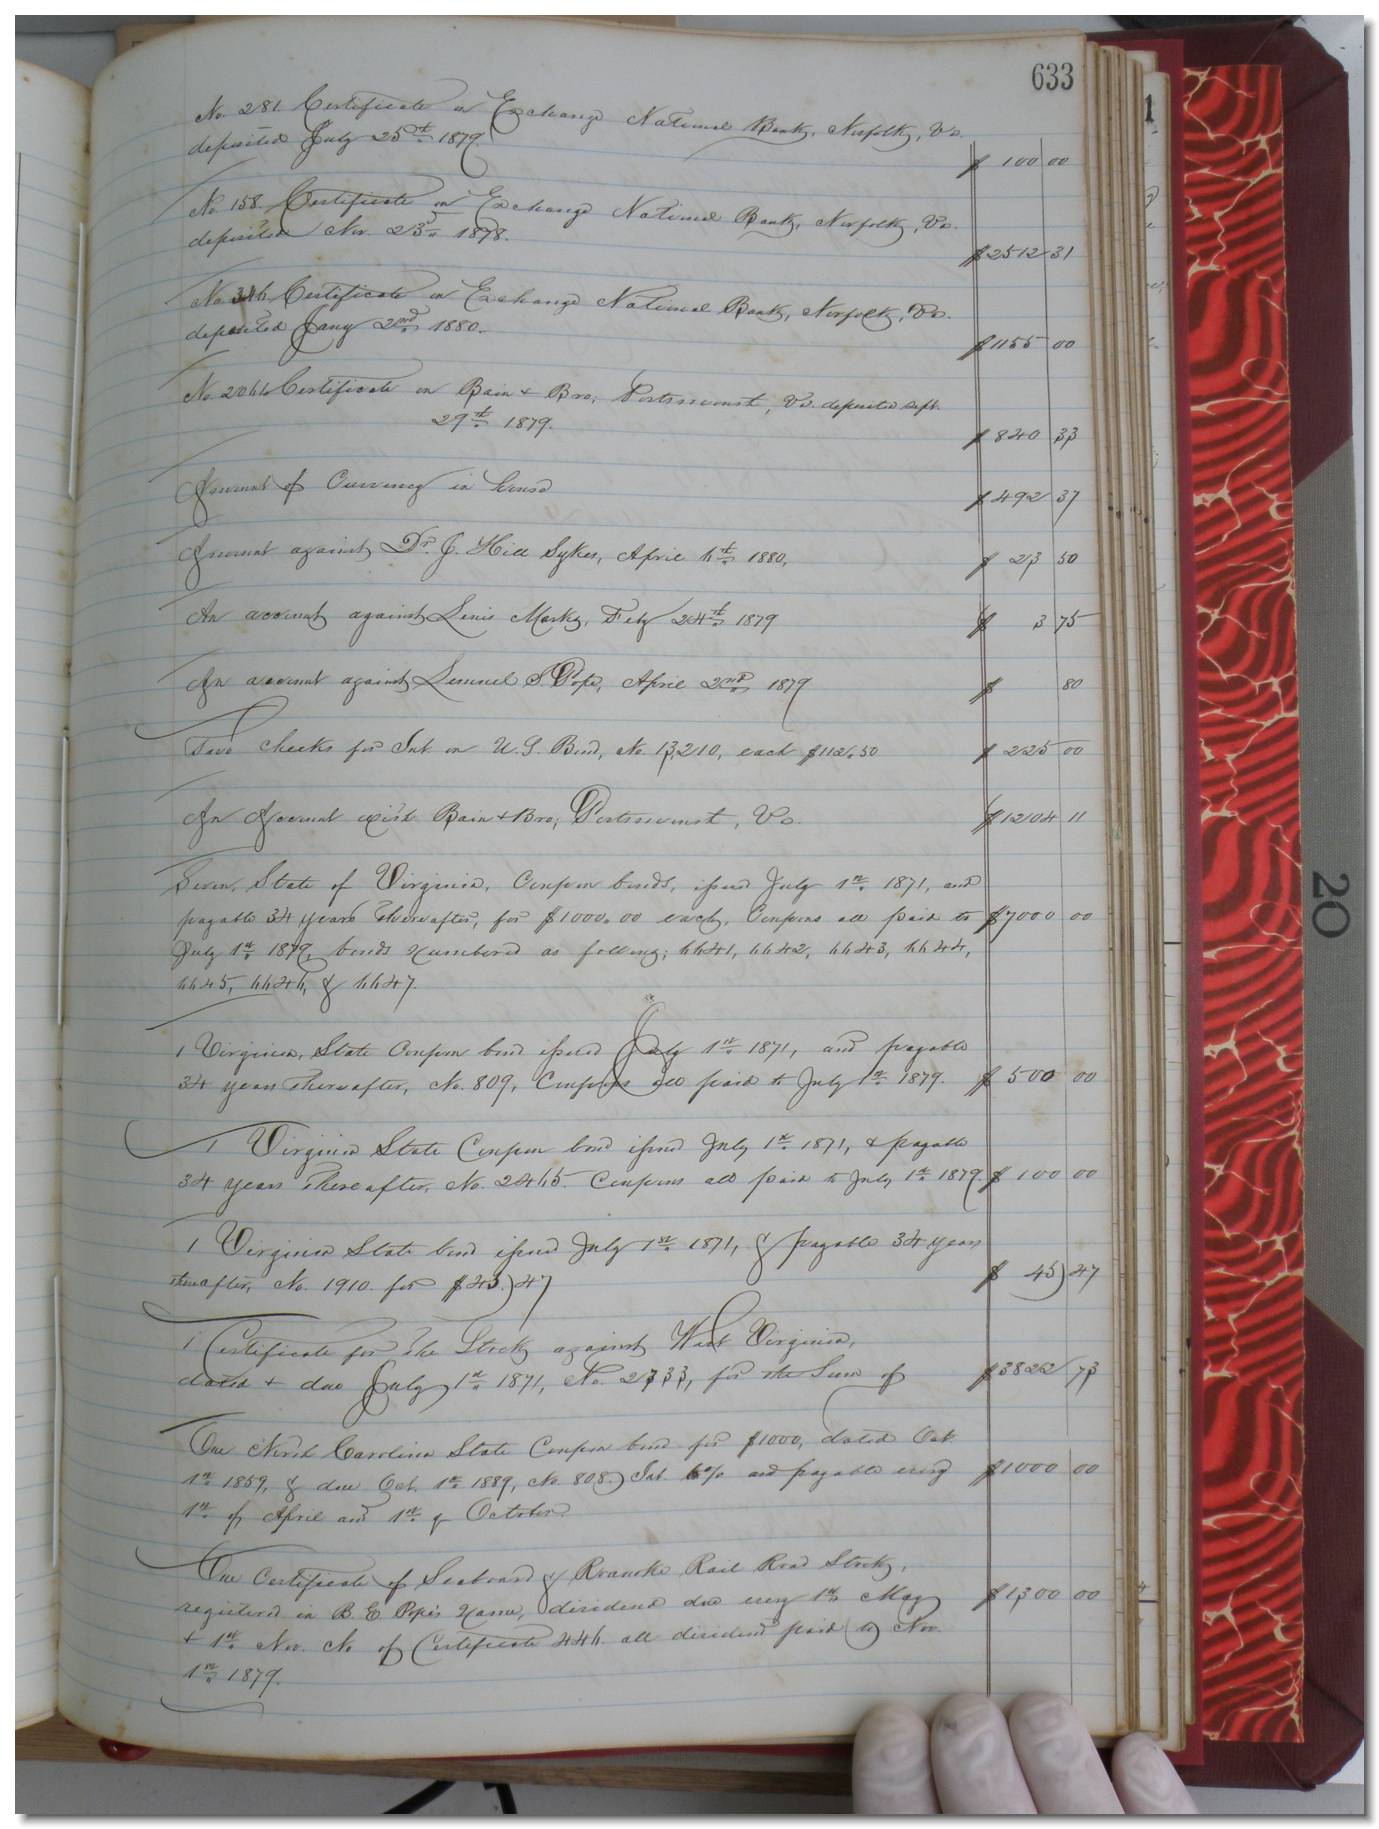 633
No. 281. Certificate on Exchange National Bank, Norfolk, Va.
deposited July 25th 1879.
$ 100 00
No. 158. Certificate on Exchange National Bank, Norfolk, Va.
deposited Nov. 23d 1878.
$2512 31
No 346 Certificate on Exchange National Bank, Norfolk, Va.
deposited Jany 2nd 1880.
$1155 00
No. 2066 Certificate on Bain & Bro; Portsmouth, Va. deposited Sept.
29th 1879.
$ 840 33
Amount of Currency in house
$ 492 37
Account against Dr. J. Hill Sykes, April 6th 1880,
$ 23 50
An account against Lewis Marks, Feby 24th 1879
$ 3 75
An account against Lemuel S. Pope, April 2nd 1879
$ 80
Two checks for Int on U.S. Bond, No. 13,210, each $112.50
$ 225 00
An Account with Bain & Bro; Portsmouth, Va.
$1204 11
Seven, State of Virginia, Coupon bonds, issued July 1st 1871, and
payable 34 years thereafter, for $1000.00 each, Coupons all paid to $7000 00
July 1st 1879, bonds numbered as follows; 6641, 6642, 6643, 6644,
6645, 6646, & 6647.
1 Virginia, State Coupon bond issued July 1st 1871, and payable
34 years thereafter, No. 809, Coupons all paid to July 1st 1879. $ 500 00
1 Virginia State Coupon bond issued July 1st 1871, & payable
34 years thereafter, No. 2465. Coupons all paid to July 1st 1879. $ 100 00
1 Virginia State bond issued July 1st 1871, & payable 34 years
thereafter, No. 1910. for $45.47
$ 45 47
1 Certificate for the Stock against West Virginia,
dated & due July 1st 1871, No. 2733, for the Sum of $3822 73
One North Carolina State Coupon bond for $1000, dated Oct
1st 1859, & due Oct. 1st 1889, No. 808. Int 6% and payable every $1000 00
1st of April and 1st of October.
One Certificate of Seaboard & Roanoke Rail Road Stock,
registered in B. E. Pope's Name, dividend due every 1st May $1300 00
& 1st Nov. No of Certificate 446. all dividend paid to Nov.
1st 1879.
20